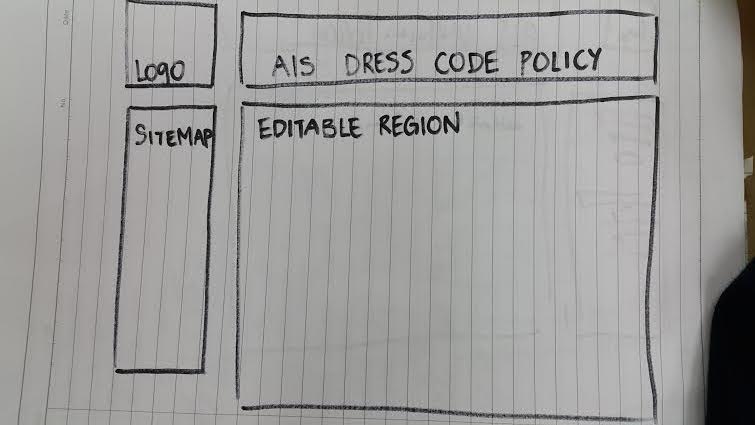 LOGO
AIS DRESS CODE POLICY
SITEMAP
EDITABLE REGION